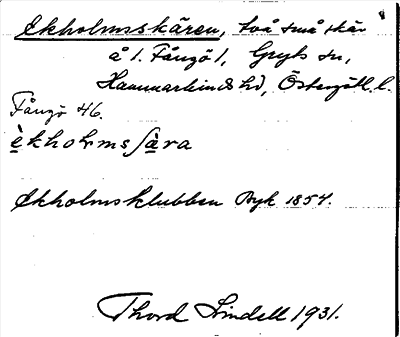 Ekholmsskären, två små skär
å 1. Fångö 1, Gryts sn,
Hammarkinds hd, Östergötl. l.
Fångö 46.
èkholmsʃæ̀ra
Ekholmsklubben Byk 1854.
Thord Lindell 1931.